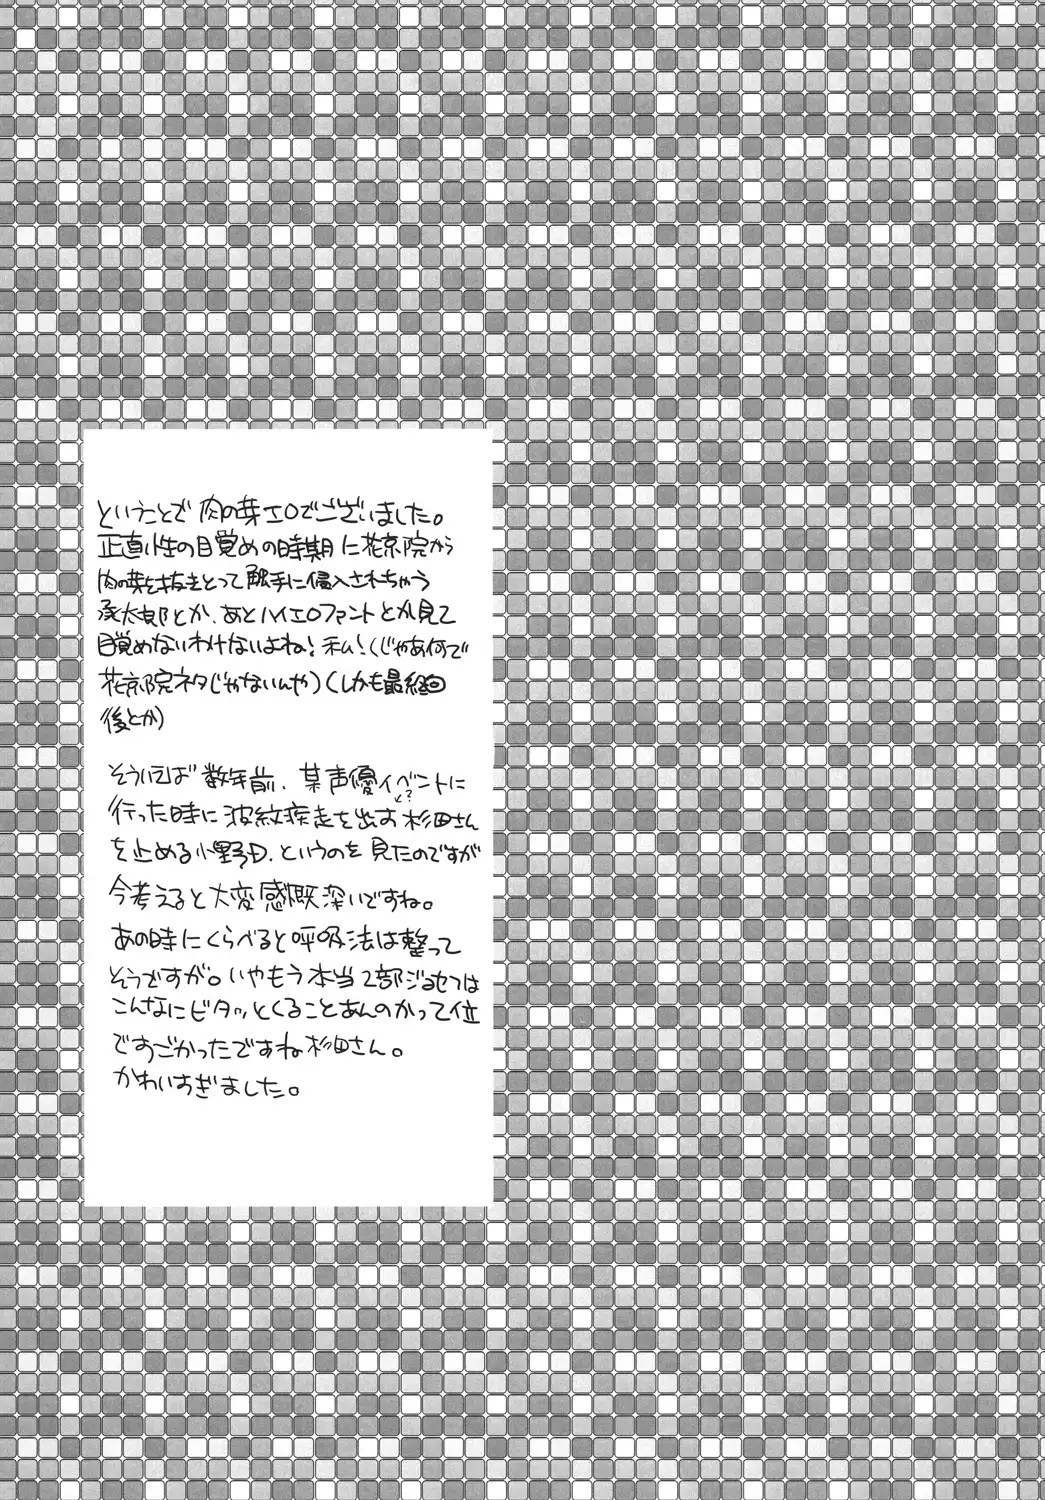 ということで 肉の芽エロでございました。
正直小生の目覚めの時期に花京院から
肉の芽を抜きとって触手に侵入されちゃう
承太郎とか、あとハイエロファントとか見て
目覚めないわけないよね！私！(じゃあ何で
花京院ネタじゃないんや)(しかも最終回
後とか)
そういえば 数年前、某声優イベントに
行った時に 波紋疾走を出す杉田さん
を止める小野D、というのを見たのですが
今考えると大変感慨深いですね。
あの時にくらべると呼吸法は整って
そうですが。いやもう本当2部ジョセフは
こんなにビタッとくることあんのかって位
ですごかったですね杉田さん。
かわいすぎました。